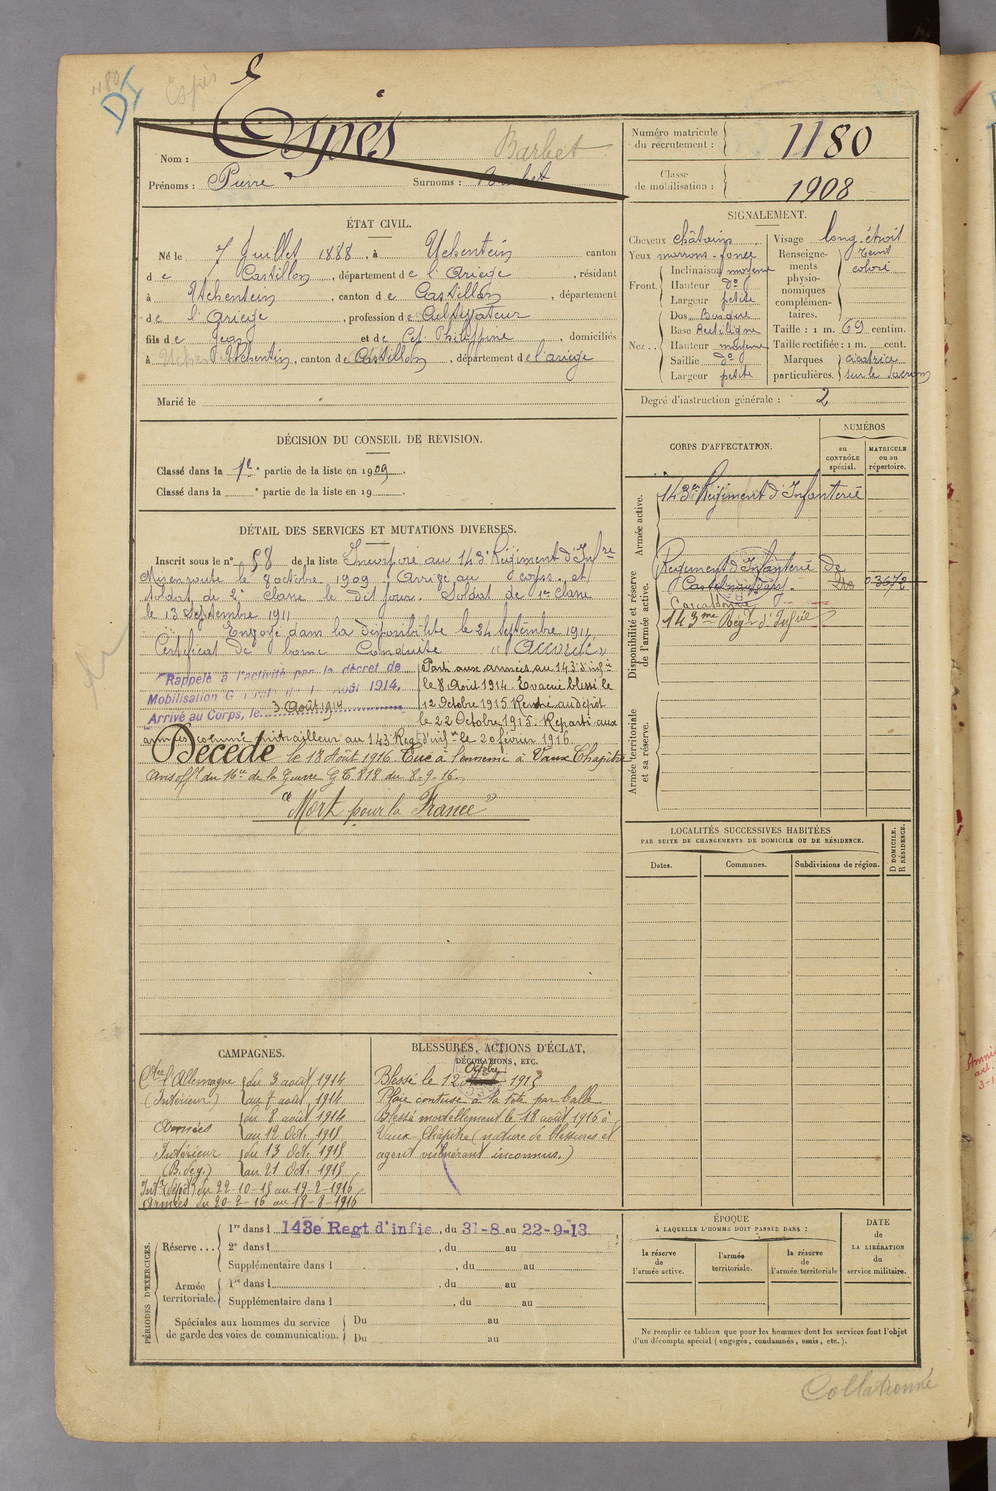 1180
DI
Espès
Nom : Espès Barbet
Prénoms : Pierre Surnoms : Barbet
Numéro matricule du recrutement : 1180
Classe de mobilisation : 1908
ÉTAT CIVIL.
Né le 7 Juillet 1888, à Uchentein canton
de Castillon, département de l'Ariège, résidant
à Uchentein, canton de Castillon, département
de l'Ariège, profession de Cultivateur
fils de Jean et de Philippine, domiciliés
à Uchentein, canton de Castillon, département de l'ariège
Marié le
SIGNALEMENT.
Cheveux châtains
Yeux marrons foncé
Front. Inclinaison moyenne
Hauteur do
Largeur petite
Nez.. Dos Busqué
Base Rectiligne
Hauteur moyenne
Saillie do
Largeur petite
Visage long étroit
Renseignements physionomiques complémentaires. Teint coloré
Taille : 1 m. 69 centim.
Taille rectifiée : 1 m. cent.
Marques particulières. cicatrice sur le sacrum
Degré d'instruction générale : 2
DÉCISION DU CONSEIL DE REVISION.
Classé dans la 1re partie de la liste en 1909.
Classé dans la e partie de la liste en 19
DÉTAIL DES SERVICES ET MUTATIONS DIVERSES.
Inscrit sous le n° 58 de la liste Incorporé au 143e Régiment d'Infre
Mis en route le 8 octobre 1909. Arrivé au corps et
soldat de 2e classe le dit jour. Soldat de 1re classe
le 13 septembre 1911
Envoyé dans la disponibilité le 24 septembre 1911.
Certificat de bonne Conduite "Accordé"
Rappelé à l'activité par le décret de
Mobilisation Générale du 1er Août 1914.
Arrivé au Corps, le 3 Août 1914
Parti aux armées au 143e d'infie
le 8 Août 1914. Evacué blessé le
12 Octobre 1915 Rentré au dépôt
le 22 Octobre 1915. Reparti aux
armées comme mitrailleur au 143e Regt d'infie le 20 février 1916.
Décédé le 18 Août 1916 Tué à l'ennemi à Vaux Chapitre
avis offel du Mre de la Guerre G T. 818 du 8-9-16.
"Mort pour la France"
CORPS D'AFFECTATION.
NUMÉROS
au CONTRÔLE spécial.
MATRICULE ou au répertoire.
Armée active.
143e Régiment d'Infanterie
Disponibilité et réserve de l'armée active.
Régiment d'Infanterie de
Castelnaudary. 03672
Carcassonne
143me Regt d'Infie
Armée territoriale et sa réserve.
LOCALITÉS SUCCESSIVES HABITÉES
PAR SUITE DE CHANGEMENTS DE DOMICILE OU DE RÉSIDENCE.
Dates. Communes. Subdivisions de région. D DOMICILE. R RÉSIDENCE.
CAMPAGNES.
Ctre l'Allemagne du 3 août 1914
(Intérieur) au 7 août 1914
Armées du 8 août 1914
au 12 Oct. 1915
Intérieur du 13 Oct. 1915
(B. deg.) au 21 Oct. 1915
Intr (dépôt) du 22-10-15 au 19-2-1916
Armées du 20-2-16 au 18-8-1916
BLESSURES, ACTIONS D'ÉCLAT,
DÉCORATIONS, ETC.
Octobre
Blessé le 12 1915
Plaie contuse à la tête par balle.
Blessé mortellement le 18 août 1916 à
Vaux Chapitre (nature de blessures et
agent vulnérant inconnus.)
PÉRIODES D'EXERCICES.
Réserve... 1re dans l 143e Regt d'infie, du 31-8 au 22-9-13
2e dans l , du au
Supplémentaire dans l , du au
Armée territoriale. 1re dans l , du au
Supplémentaire dans l , du au
Spéciales aux hommes du service de garde des voies de communication. Du au
Du au
ÉPOQUE
À LAQUELLE L'HOMME DOIT PASSER DANS :
la réserve de l'armée active.
l'armée territoriale.
la réserve de l'armée territoriale
DATE de LA LIBÉRATION du service militaire.
Ne remplir ce tableau que pour les hommes dont les services font l'objet
d'un décompte spécial (engagés, condamnés, omis, etc.).
Collationné